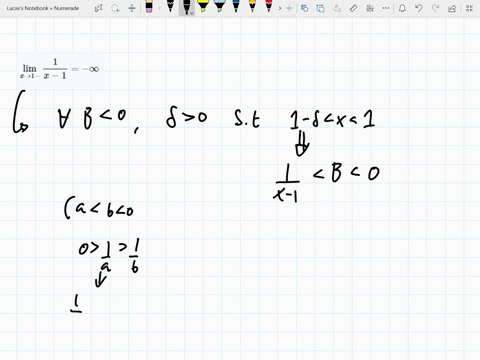 Lucas's Notebook » Numerade
lim x→1− 1/(x − 1) = −∞
∀ B < 0 , δ > 0 s.t 1-δ < x < 1
⇓
1/(x-1) < B < 0
( a < b < 0
0 > 1/a > 1/b
↓
1/